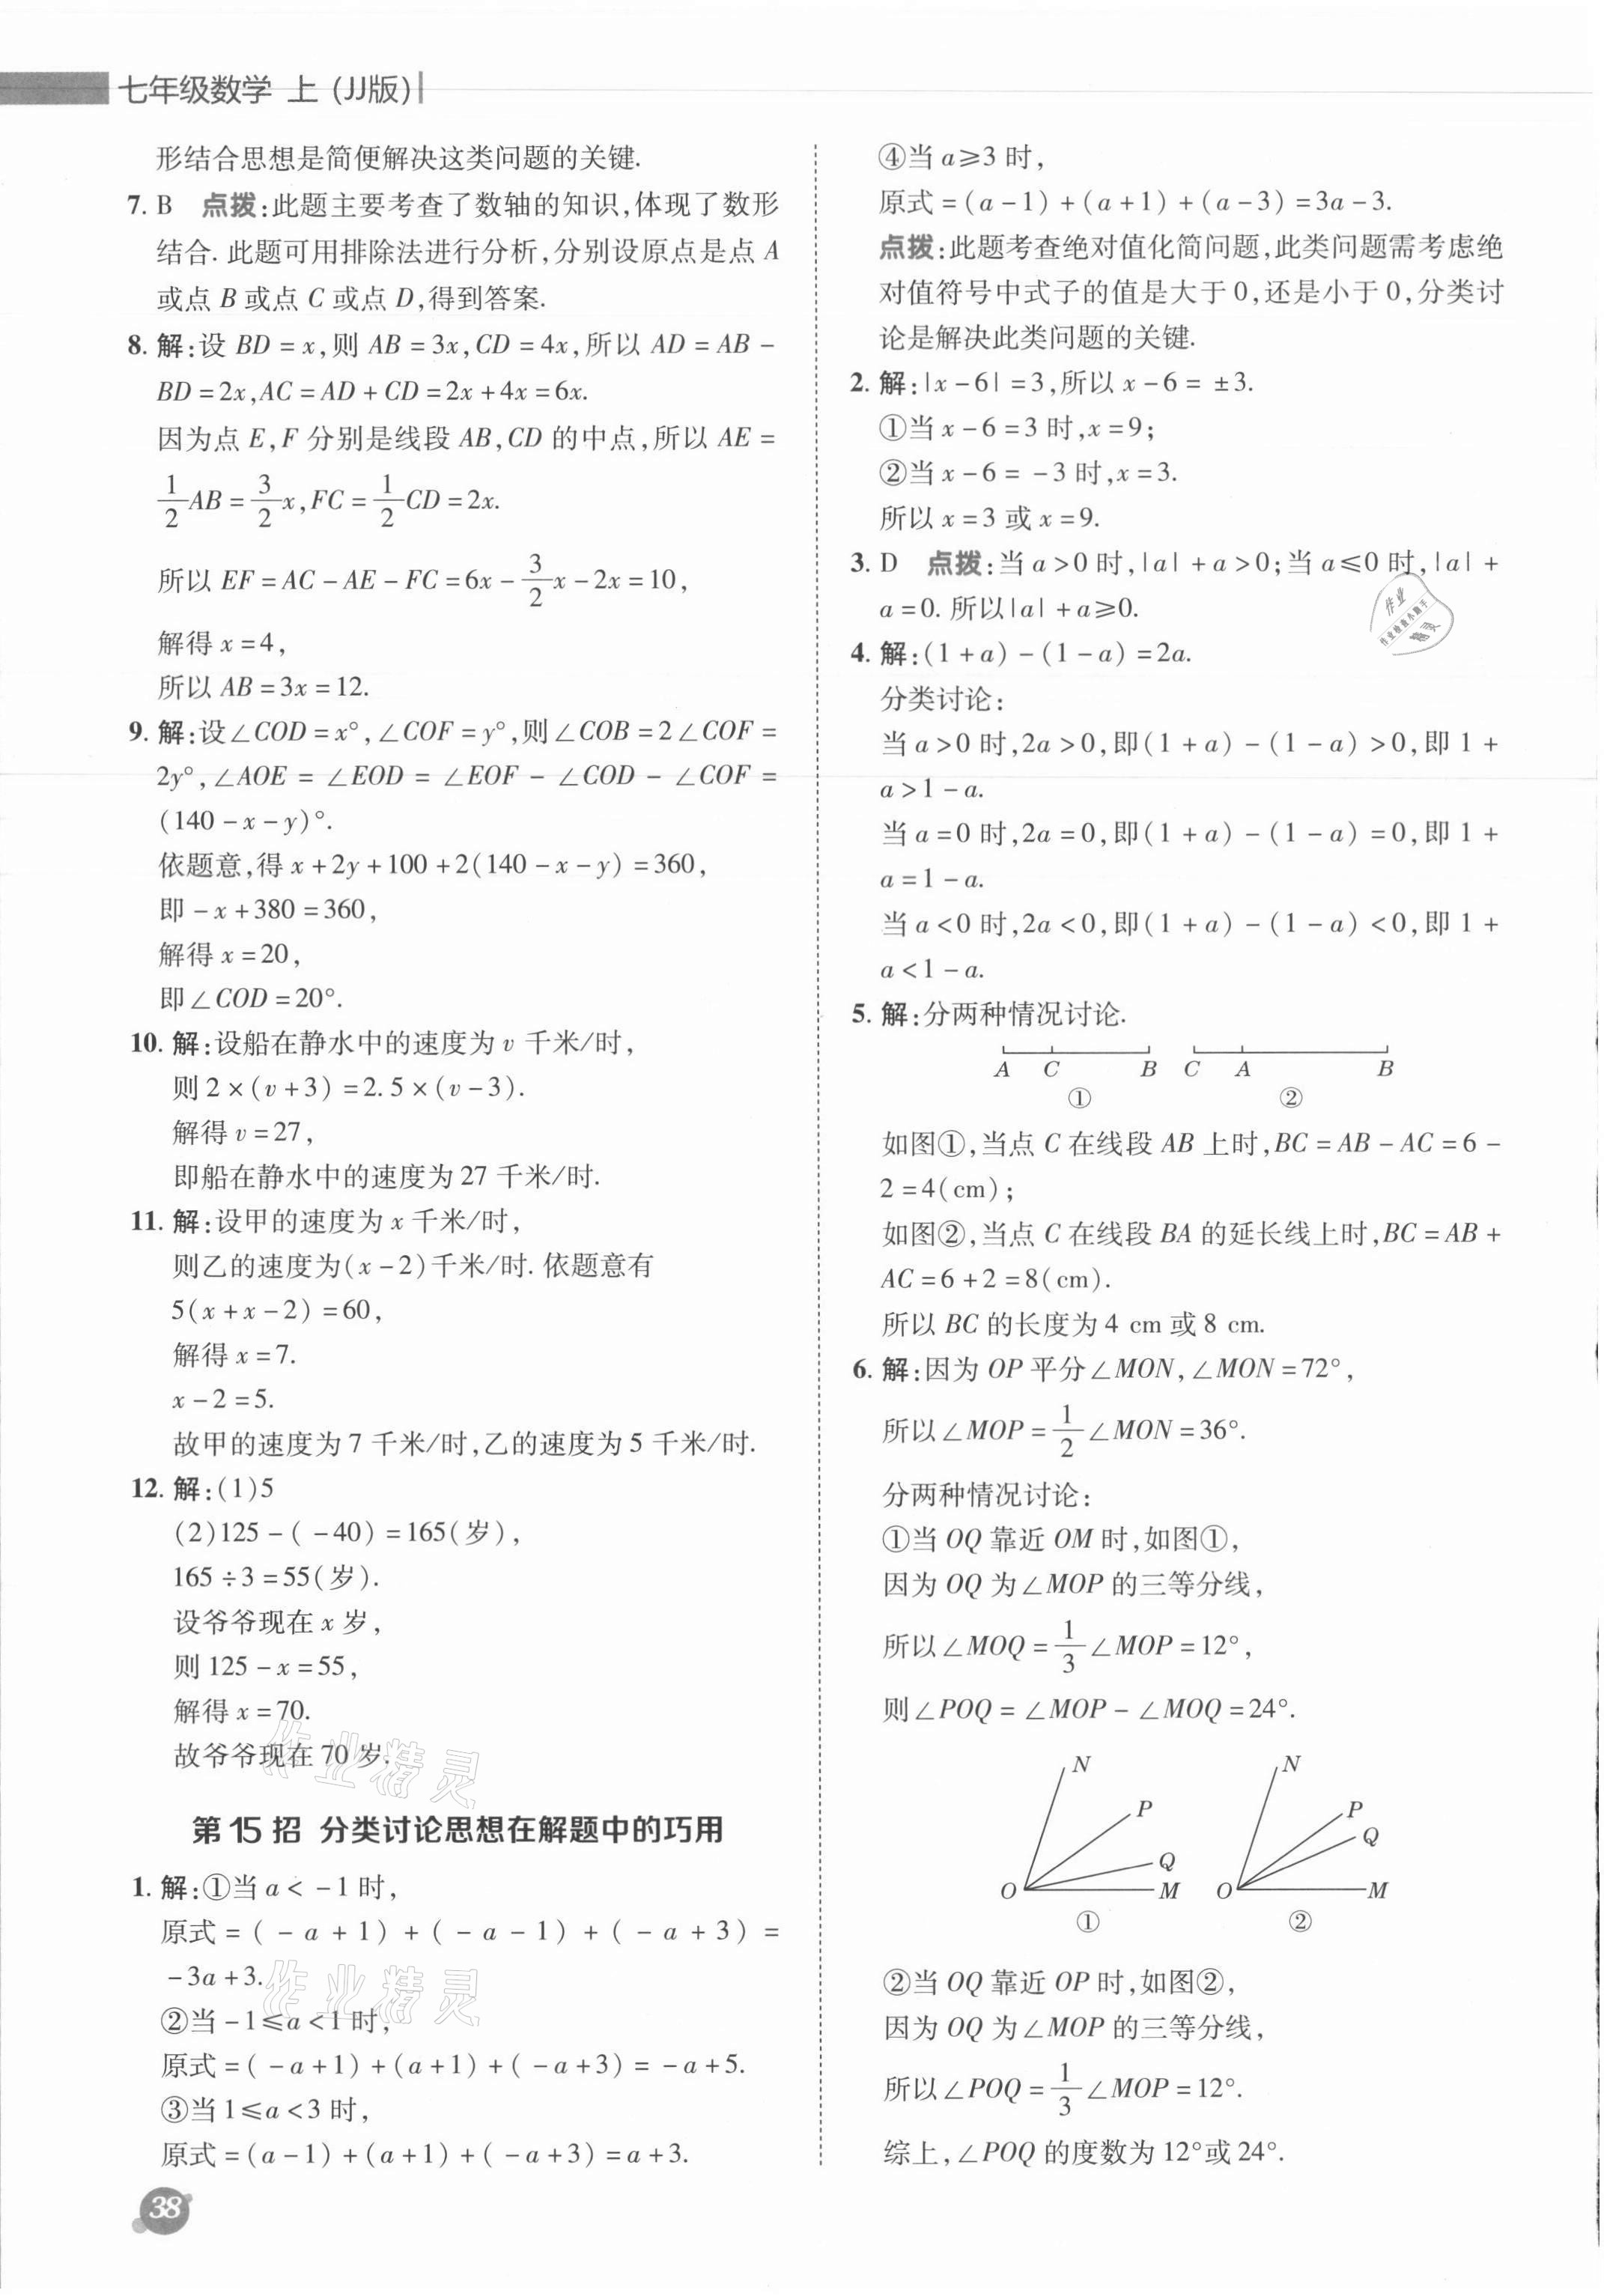 七年级数学 上（JJ版）
形结合思想是简便解决这类问题的关键.
7. B 点拨:此题主要考查了数轴的知识,体现了数形
结合. 此题可用排除法进行分析,分别设原点是点 A
或点 B 或点 C 或点 D,得到答案.
8. 解:设 BD = x,则 AB = 3x,CD = 4x,所以 AD = AB -
BD = 2x,AC = AD + CD = 2x + 4x = 6x.
因为点 E,F 分别是线段 AB,CD 的中点,所以 AE =
1/2 AB = 3/2 x,FC = 1/2 CD = 2x.
所以 EF = AC - AE - FC = 6x - 3/2 x - 2x = 10,
解得 x = 4,
所以 AB = 3x = 12.
9. 解:设∠COD = x°,∠COF = y°,则∠COB = 2∠COF =
2y°,∠AOE = ∠EOD = ∠EOF - ∠COD - ∠COF =
(140 - x - y)°.
依题意,得 x + 2y + 100 + 2(140 - x - y) = 360,
即 - x + 380 = 360,
解得 x = 20,
即∠COD = 20°.
10. 解:设船在静水中的速度为 v 千米/时,
则 2 × (v + 3) = 2. 5 × (v - 3).
解得 v = 27,
即船在静水中的速度为 27 千米/时.
11. 解:设甲的速度为 x 千米/时,
则乙的速度为(x - 2)千米/时. 依题意有
5(x + x - 2) = 60,
解得 x = 7.
x - 2 = 5.
故甲的速度为 7 千米/时,乙的速度为 5 千米/时.
12. 解:(1)5
(2)125 - ( - 40) = 165(岁),
165 ÷ 3 = 55(岁).
设爷爷现在 x 岁,
则 125 - x = 55,
解得 x = 70.
故爷爷现在 70 岁.
作业精灵
第 15 招 分类讨论思想在解题中的巧用
1. 解:①当 a < - 1 时,
原式 = ( - a + 1) + ( - a - 1) + ( - a + 3) =
- 3a + 3.
作业精灵
②当 - 1 ≤ a < 1 时,
原式 = ( - a + 1) + (a + 1) + ( - a + 3) = - a + 5.
③当 1 ≤ a < 3 时,
原式 = (a - 1) + (a + 1) + ( - a + 3) = a + 3.
38
④当 a ≥ 3 时,
原式 = (a - 1) + (a + 1) + (a - 3) = 3a - 3.
点拨:此题考查绝对值化简问题,此类问题需考虑绝
对值符号中式子的值是大于 0,还是小于 0,分类讨
论是解决此类问题的关键.
2. 解:|x - 6| = 3,所以 x - 6 = ± 3.
①当 x - 6 = 3 时,x = 9;
②当 x - 6 = - 3 时,x = 3.
所以 x = 3 或 x = 9.
3. D 点拨:当 a > 0 时,|a| + a > 0;当 a ≤ 0 时,|a| +
a = 0. 所以|a| + a ≥ 0.
作业
作业检查小助手
精灵
4. 解:(1 + a) - (1 - a) = 2a.
分类讨论:
当 a > 0 时,2a > 0,即(1 + a) - (1 - a) > 0,即 1 +
a > 1 - a.
当 a = 0 时,2a = 0,即(1 + a) - (1 - a) = 0,即 1 +
a = 1 - a.
当 a < 0 时,2a < 0,即(1 + a) - (1 - a) < 0,即 1 +
a < 1 - a.
5. 解:分两种情况讨论.
A C B C A B
① ②
如图①,当点 C 在线段 AB 上时,BC = AB - AC = 6 -
2 = 4(cm);
如图②,当点 C 在线段 BA 的延长线上时,BC = AB +
AC = 6 + 2 = 8(cm).
所以 BC 的长度为 4 cm 或 8 cm.
6. 解:因为 OP 平分∠MON,∠MON = 72°,
所以∠MOP = 1/2 ∠MON = 36°.
分两种情况讨论:
①当 OQ 靠近 OM 时,如图①,
因为 OQ 为∠MOP 的三等分线,
所以∠MOQ = 1/3 ∠MOP = 12°,
则∠POQ = ∠MOP - ∠MOQ = 24°.
N N
P P
Q Q
O M O M
① ②
②当 OQ 靠近 OP 时,如图②,
因为 OQ 为∠MOP 的三等分线,
所以∠POQ = 1/3 ∠MOP = 12°.
综上,∠POQ 的度数为 12°或 24°.